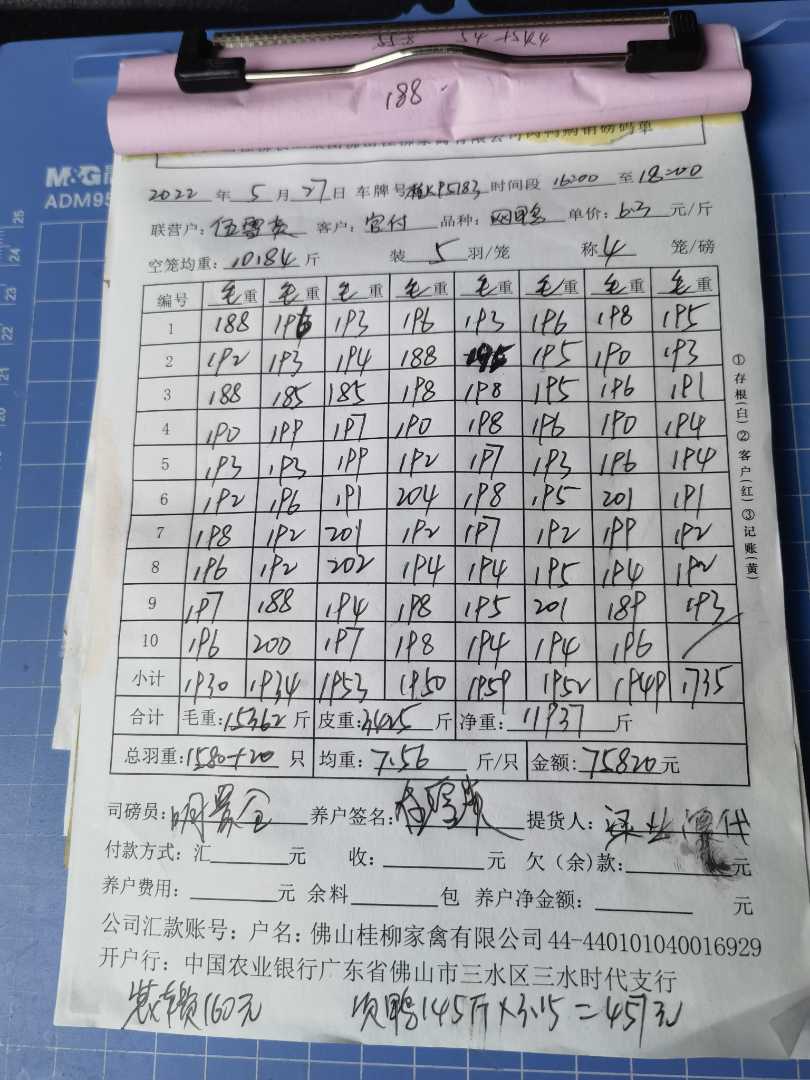 558 54+544
188
2022 年 5 月 27 日 车牌号 桂KP5183 时间段 16:00 至 18:00
联营户: 客户: 官付 品种: 单价: 6.3 元/斤
空笼均重: 10.84 斤 装 5 羽/笼 称 4 笼/磅
编号 毛重 毛重 毛重 毛重 毛重 毛重 毛重 毛重
1 188 196 193 196 193 196 198 195
2 192 193 194 188 195 195 190 193
3 188 185 185 198 198 195 196 191
4 190 199 197 190 198 196 190 194
5 193 193 199 192 197 193 196 194
6 192 196 191 204 198 195 201 191
7 198 192 201 192 197 192 199 192
8 196 192 202 194 194 195 194 192
9 197 188 194 198 195 201 189 193
10 196 200 197 198 194 194 196 /
小计 1930 1934 1953 1950 1959 1952 1949 1735
合计 毛重: 15362 斤 皮重: 3425 斤 净重: 11937 斤
总羽重: 1580+20 只 均重: 7.56 斤/只 金额: 75820 元
司磅员: 养户签名: 提货人:
付款方式: 汇 元 收: 元 欠(余)款: 元
养户费用: 元 余料 包 养户净金额: 元
公司汇款账号: 户名: 佛山桂柳家禽有限公司 44-440101040016929
开户行: 中国农业银行广东省佛山市三水区三水时代支行
160元 次鸭145斤×3.15=457元
①存根(白)②客户(红)③记账(黄)
M&G
ADM95